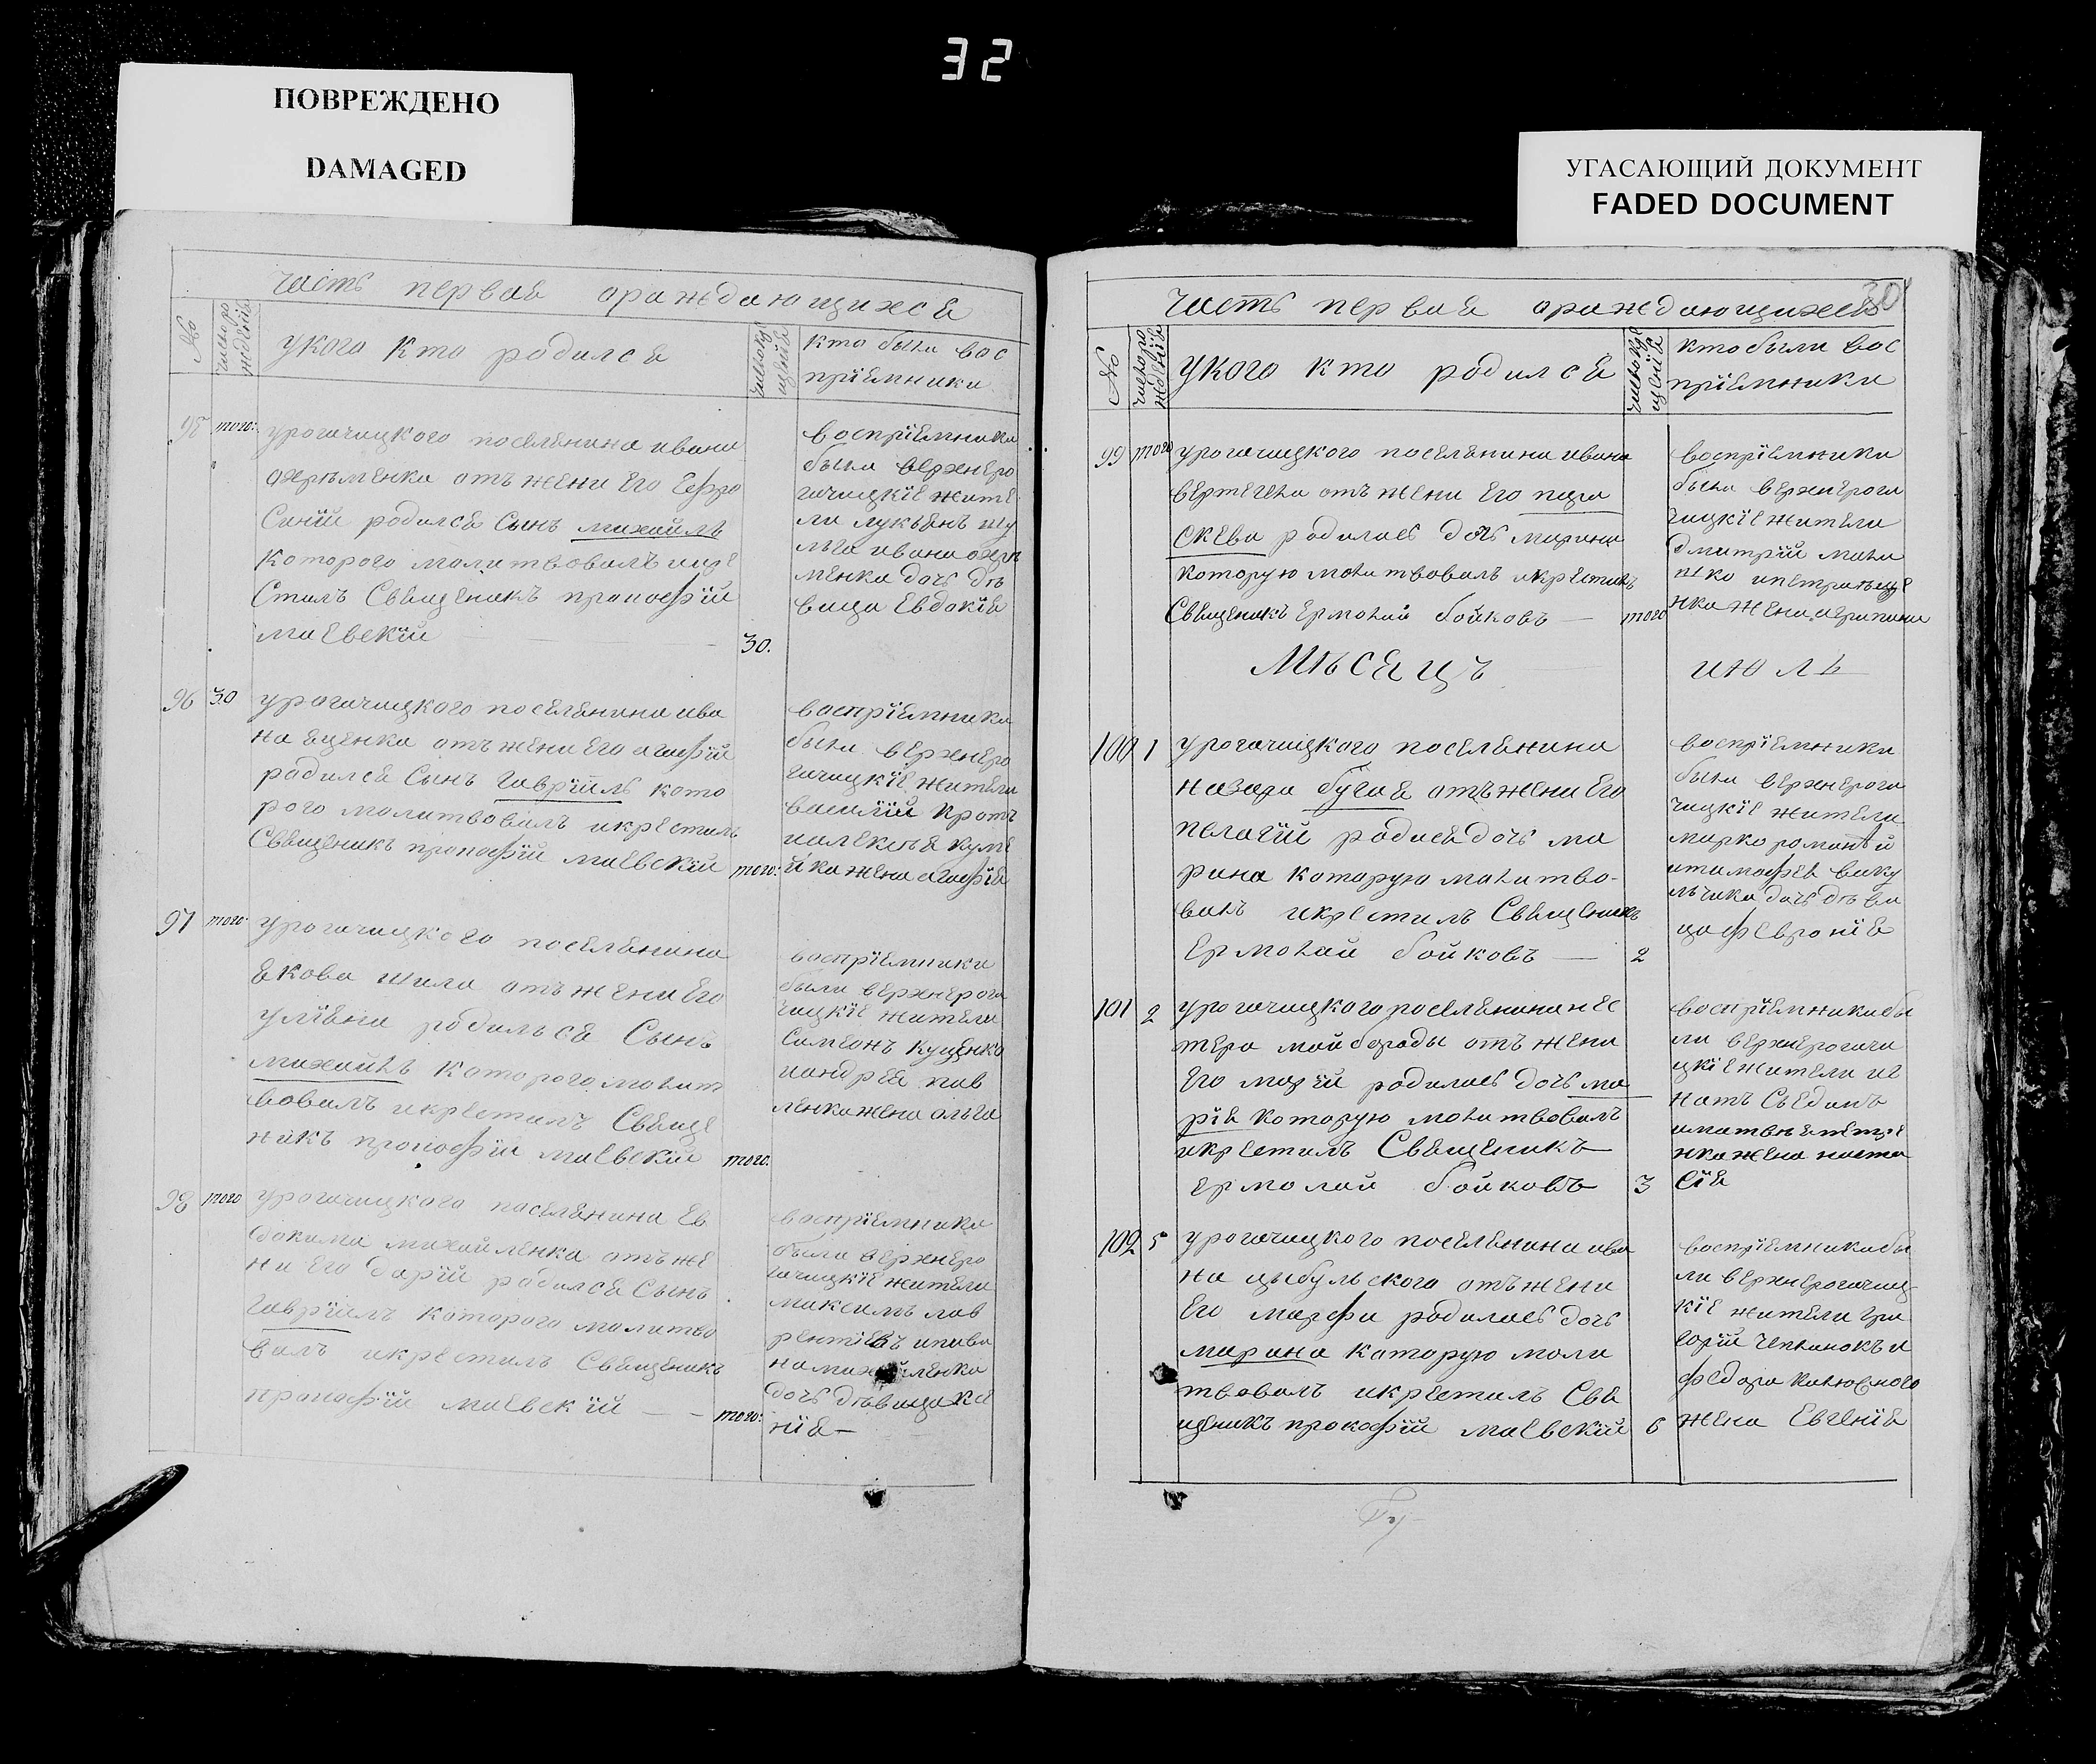 32
ПОВРЕЖДЕНО
DAMAGED
УГАСАЮЩИЙ ДОКУМЕНТ
FADED DOCUMENT
часть первая ораждающихся
№
число ро
жденія
укого кто родился
число кр
щенія
кто были вос
пріемники
95 того: урогачицкого поселянина ивана
охрѣменка отъ жени его Ефро
Синіи родился Сынъ михаилъ
которого молитвовалъ икре
Стилъ Священикъ прокофій
маевскій 30.
воспріемники
были верхнеро
гачицкіе жите
ли лукъянъ
ивана охрѣ
менка дочь дѣ
вица Евдокія
96 30 урогачицкого поселянина ива
на яценка отъ жени его агафіи
родился Сынъ гавріилъ кото
рого молитвовалъ икрестилъ
Священикъ прокофій маевскій того:
воспріемники
были верхнеро
гачицкіе жители
василій кротъ
иалексѣя куме
йка жена агафія
97 того: урогачицкого поселянина
якова шила отъ жени его
уліяни родилься Сынъ
михаилъ которого молит
вовалъ икрестилъ Святще
никъ прокофій маевскій того:
воспріемники
были верхнерога
чицкіе жители
Симеонъ куценко
иандрея пав
ленка жена ольга
98 того урогачицкого поселянина Ев
докима михайленка отъ же
ни его даріи родился Сынъ
гавріилъ которого молитво
валъ икрестилъ Священикъ
прокофій маевскій — — того:
воспріемники
были верхнеро
гачицкіе жители
максимъ лав
рентіевъ ипавла
михайленка
дочь дѣвица ксе
нія —
30
часть первая ораждающихся
№
число ро
жденія
укого кто родился
число кр
щенія
кто были вос
пріемники
99 того урогачицкого поселянина ивана
вертегела отъ жени его пара
скева родилась дочь марина
которую молитвовалъ икрестилъ
Священикъ Ермолай бойковъ — того
воспріемники
были верхнерога
чицкіе жители
дмитрій
ипетра
нка жена агрипина
Мѣсяцъ июль
100 1 урогачицкого поселянина
назара бугая отъ жени его
пелагіи родися дочь ма
рина которую молитво-
валъ икрестилъ Священикъ
Ермолай бойковъ — 2
воспріемники
были верхнерога
чицкіе жители
марко романъ и
итимофея ваку
льчика дочь дѣви
ца февронія
101 2 урогачицкого поселянина нес
тера майбороды отъ жени
его маріи родилась дочь ма
рія которую молитвовалъ
икрестилъ Священикъ
Ермолай бойковъ 3
воспріемники бы
ли верхнерогачи
цкіе жители иг
натъ Съединъ
иматвѣя петре
нка жена наста
сія
102 5 урогачицкого поселянина ива
на цыбульского отъ жени
его марфи родилась дочь
марина которую моли
твовалъ икрестилъ Свя
щеникъ прокофій маевскій 6
воспріемники бы
ли верхнерогачиц-
кіе жители гри
горій чепинокъ и
федора
жена Евгенія